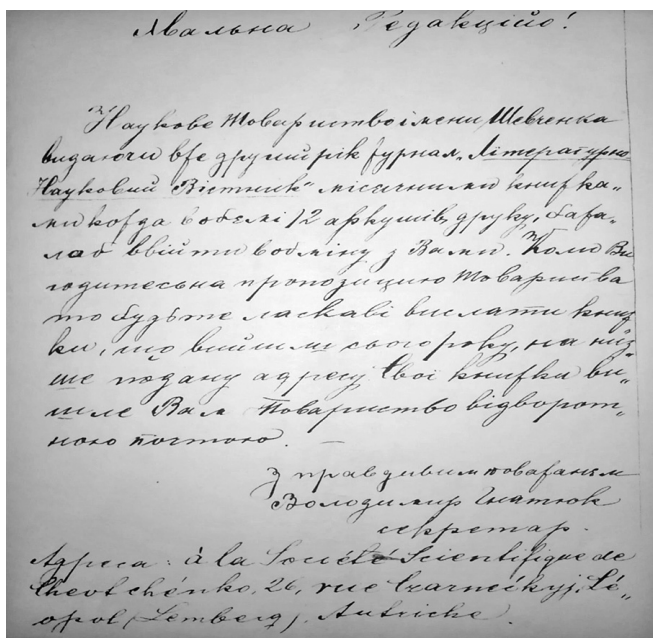 Хвальна Редакційо!
Наукове Товариство імени Шевченка
видаючи вже другий рік журнал „Літературно-
Науковий Вістник" місячними книжка„
ми кожда в обємі 12 аркушів друку, бажа„
лаб ввійти в обміну з Вами. Коли Ви
годитесь на пропозицию Товариства
то будьте ласкаві вислати книж„
ки, що вийшли сього року, на низ„
ше подану адресу. Свої книжки ви„
шле Вам Товариство відворот„
ною поштою. —
З правдивим поважанєм
Володимир Гнатюк
секретар.
Адреса: à la Société Scientifique de
Chevtchénko, 26, rue Czarnećkyj, Lé„
opol (Lemberg), Autriche.